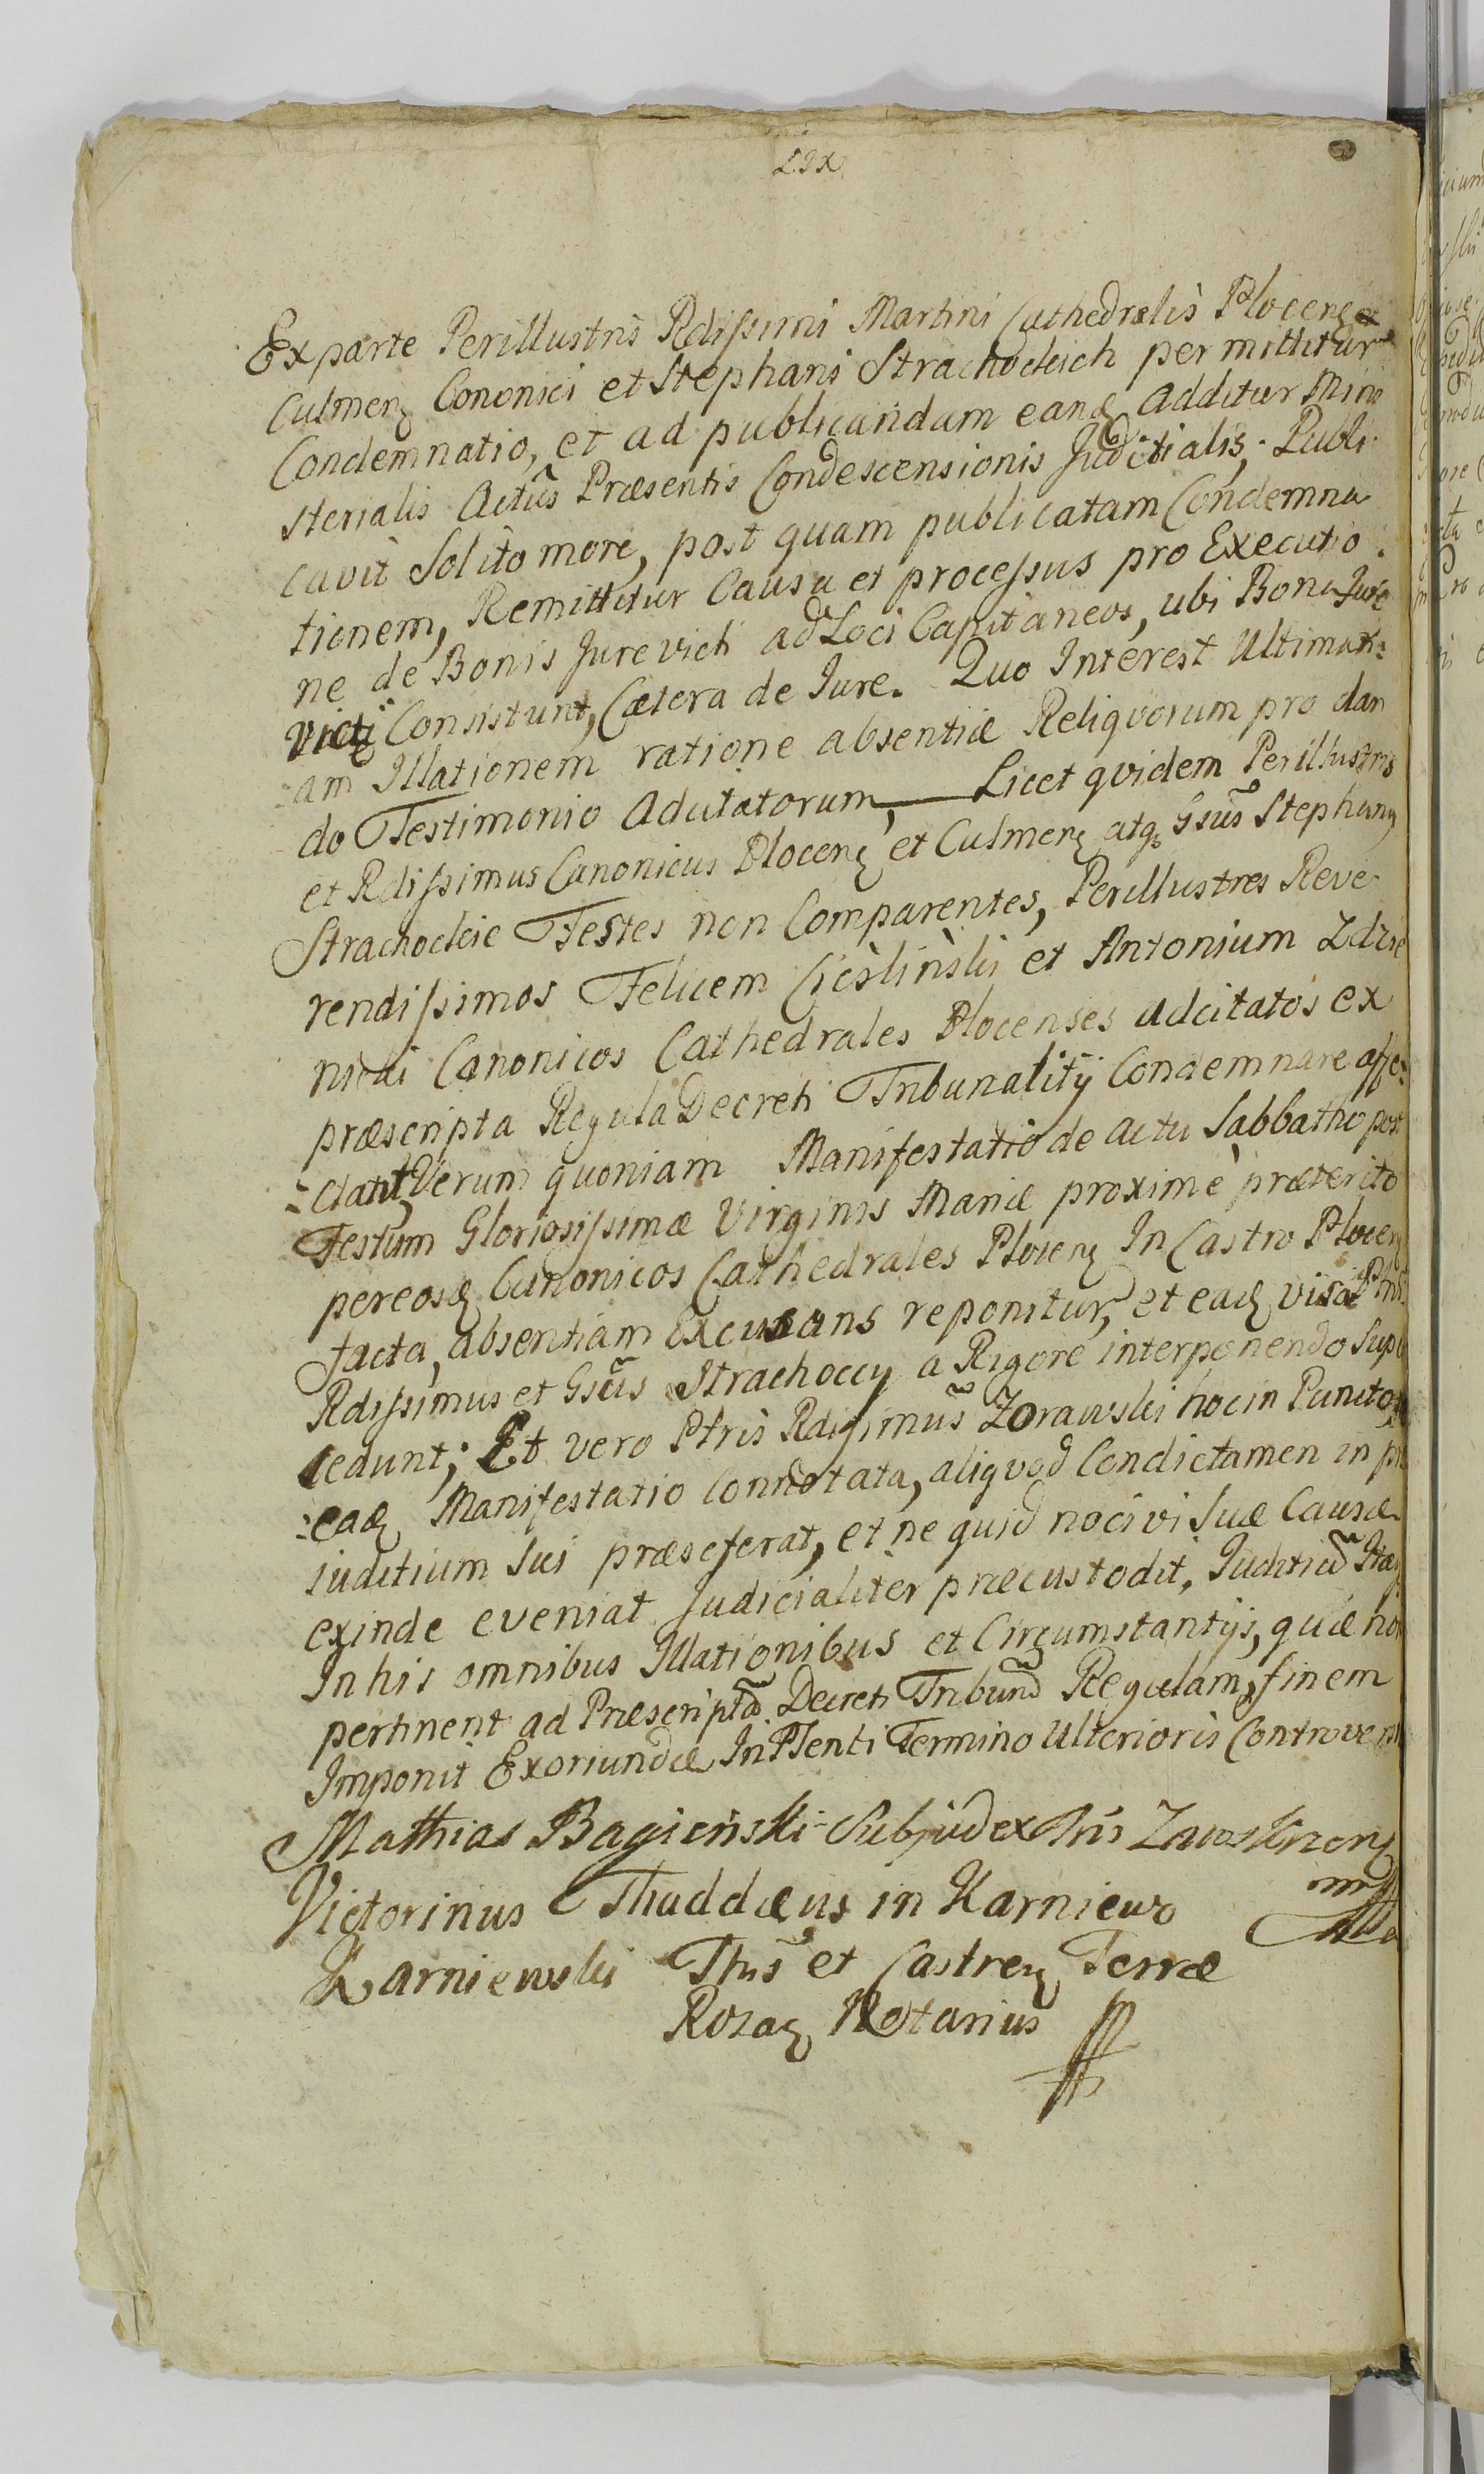 Ex parte Perillustris Rdissimi Martini Cathedralis Plocenȩ et
Culmenȩ Cononici et Stephani Strachockich permittitur
Condemnatio, et ad publicandam eanđ additur Mini
sterialis Actûs Præsentis Condescensionis Juditialis, Publi-
cavit Solito more, post quam publicatam Condemna
tionem, Remittitur Causa et processus pro Executio
ne de Bonis Jurevicti ad Loci Capitaneos, ubi Bona Jure
victi Consistunt, Cætera de Iure. Quo Interest Ultimati=
:am Illationem ratione absentiæ Reliqvorum pro dan
do Testimonio Adcitatorum, Licet qvidem Perillustris
et Rdissimus Canonicus Plocenȩ et Culmenȩ atqȝ Gsus Stephanȝ
Strachockie Testes non Comparentes, Perillustres Reve
rendissimos Felicem Cieslinski et Antonium Zdzie
nicki Canonicos Cathedrales Plocenses adcitatos ex
præscripta Regula Decreti Tribunalitÿ Condemnare affe=
:ctant, Verum quoniam Manifestatio de actu Sabbatho post
Festum Gloriosissimæ Virginis Mariæ proximè præterito
per eosđ Canonicos Cathedrales Plocenȩ In Castro Plocenȩ
facta, absentiam Excusans reponitur, et eađ visa
Rdissimus et Gsus Strachoccy a Rigore interponendo Super
cedunt; Et vero Ptris Rdissimus Zorawski hoc in Puncto,
:eađ Manifestatio Connotata, aliqvod Condictamen in præ
iuditium Sui præseferat, et ne quid nocivi Suæ Causæ
exinde eveniat Judicialiter præcustodit, Juditiũ
In his omnibus Illationibus et Circumstantijs, quæ non
pertinent ad Præscriptã Decreti Tribund Regulam, finem
Imponit Exoriundæ In PSenti Termino Ulterioris
Mathias Bagieński Subjudex Tris Zawskrzenȩ
mpp
Victorinus Thaddæus in Karniewo
Karniewski Thus et Castrenȩ Terræ
Rozanȩ Notarius